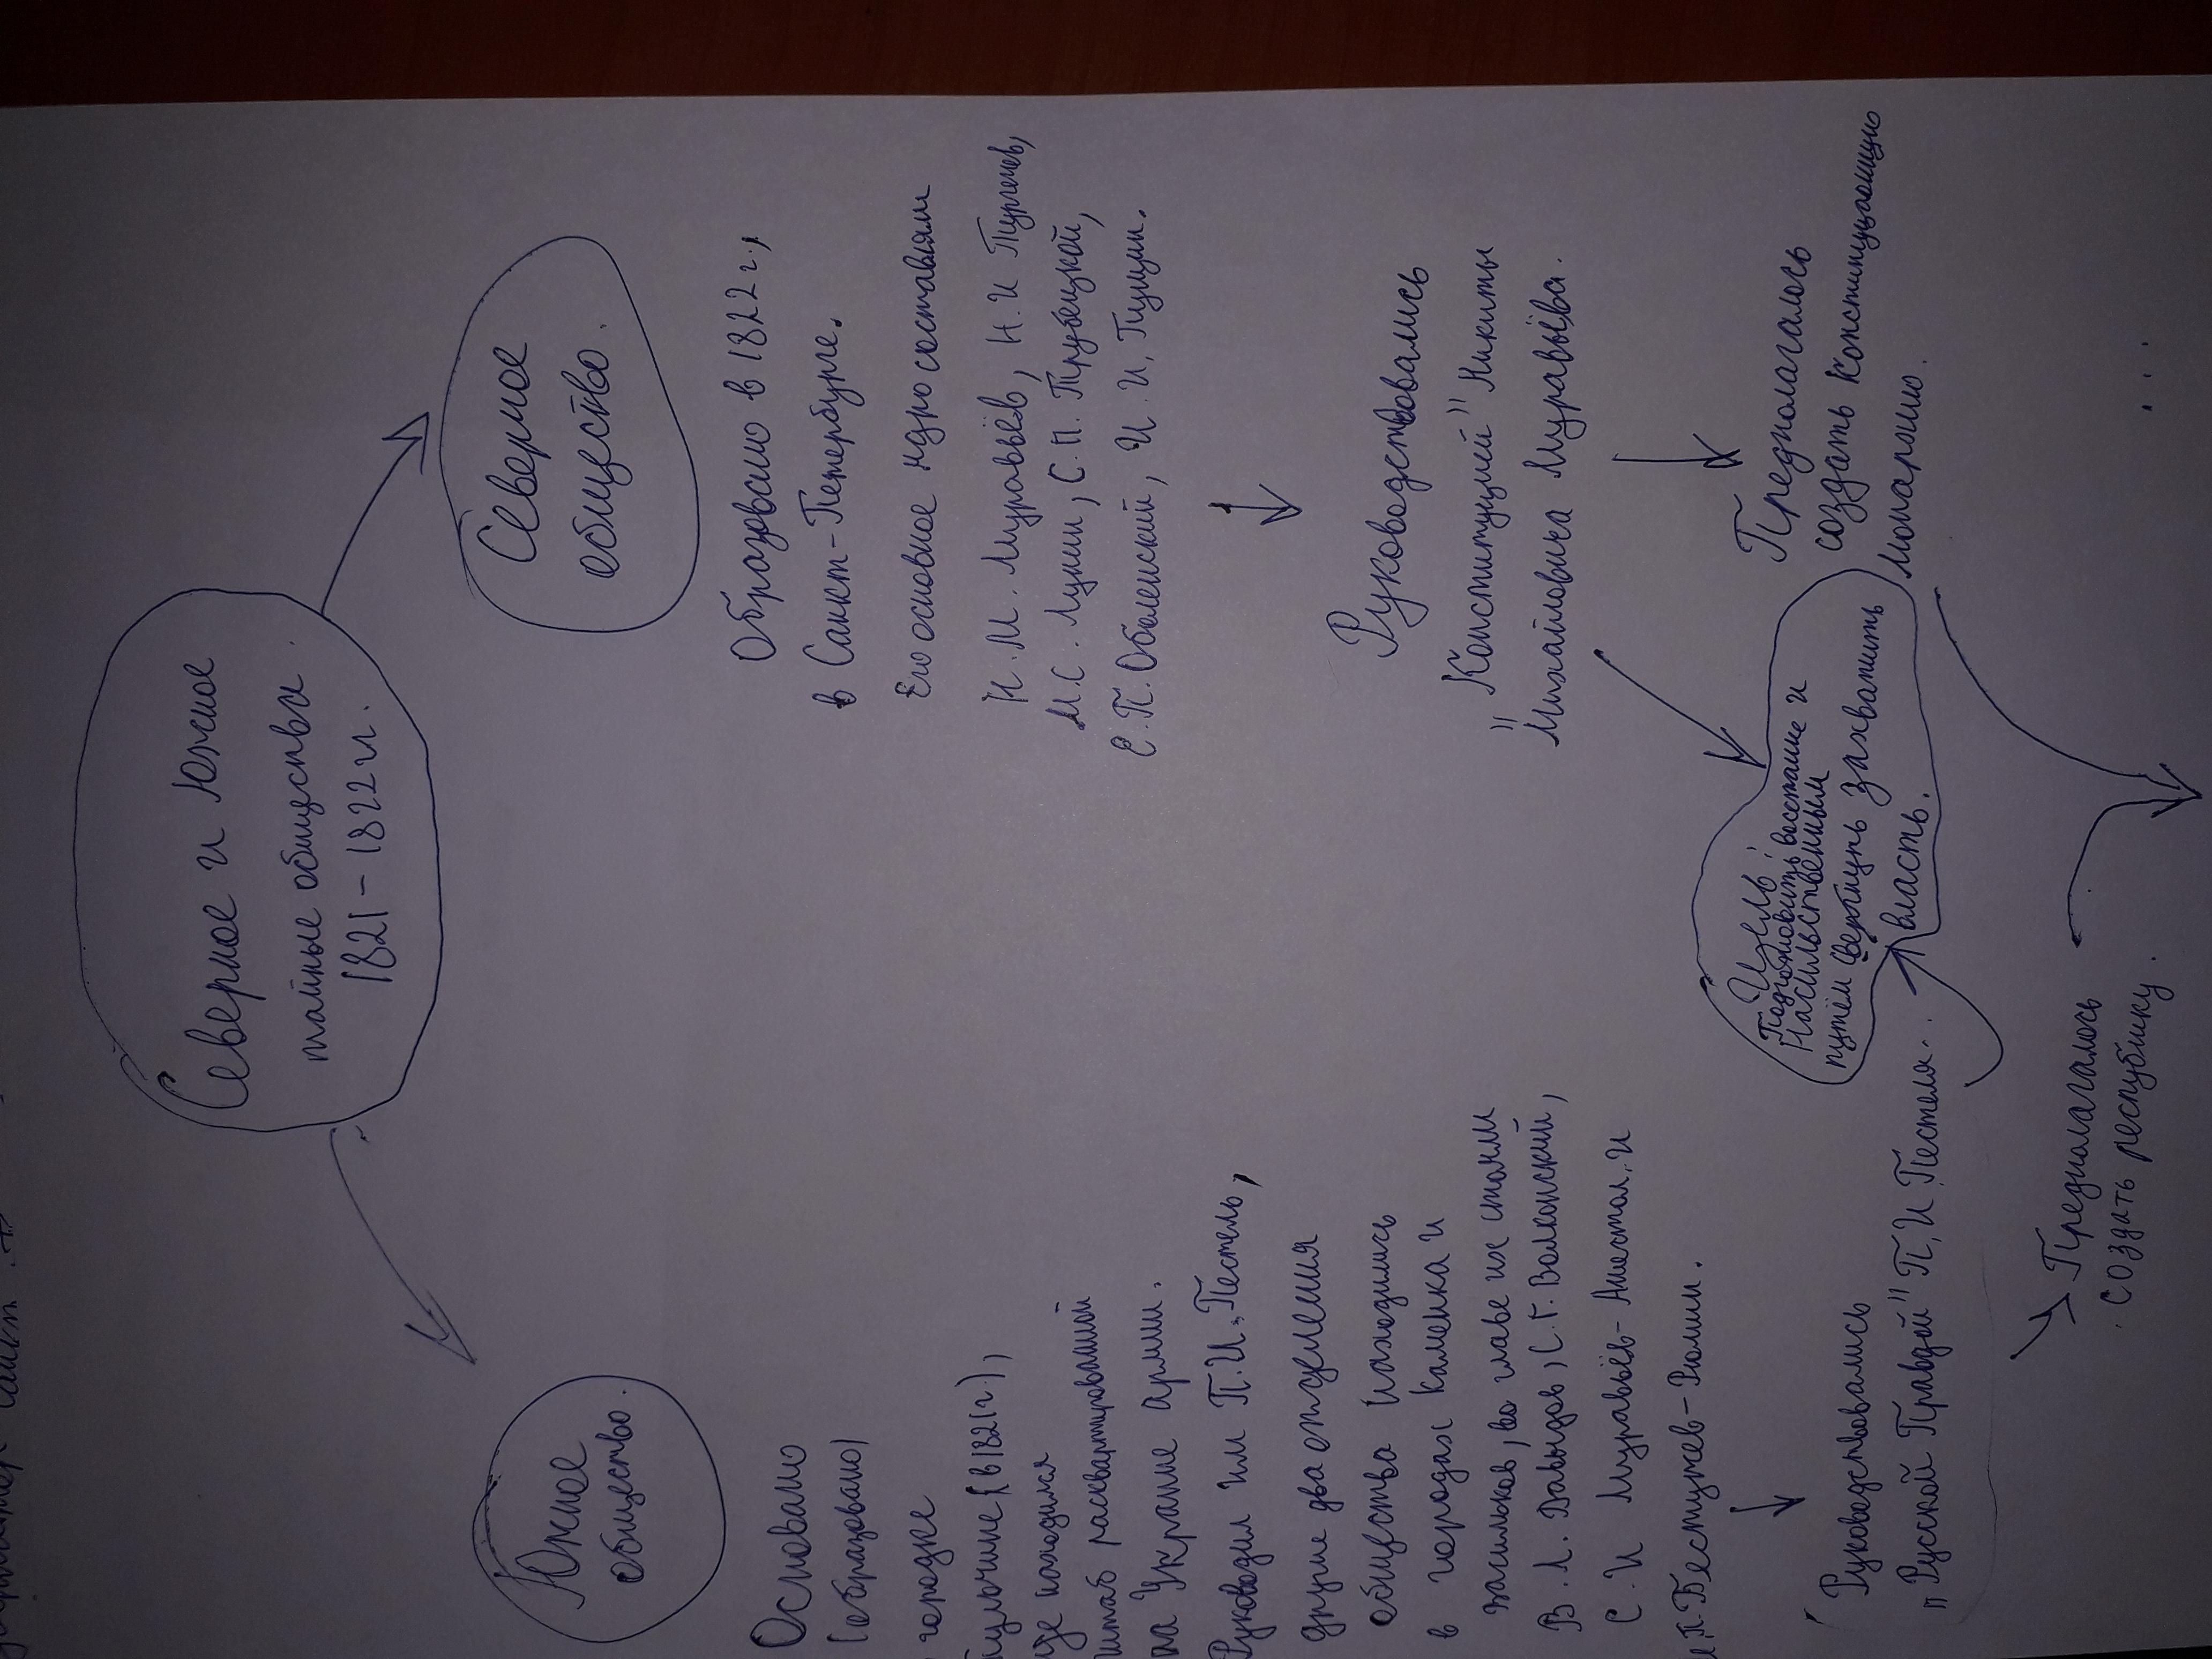 Северное и Южное
тайные общества
1821-1822 гг.
Южное
общество.
Основано
(образовано)
городке
Тульчине (в 1821 г.),
где находился
штаб расквартированной
на Украине армии.
Руководил им П.И. Пестель,
другие два отделения
общества находились
в городах Каменка и
Васильков, во главе их стояли
В.Л. Давыдов, С.Г. Волконский,
С.И Муравьёв-Апостол.и
М.П.Бестужев-Рюмин.
Руководствовались
"Русской Правдой" П.И. Пестеля.
Предполагалось
создать республику.
Северное
общество.
Образовано в 1822 г.,
в Санкт-Петербурге.
Его основное ядро составили
Н.М. Муравьёв, Н.И Тургенев,
М.С. Лунин, С.П. Трубецкой,
Е.П.Оболенский, И.И. Пущин.
Руководствовались
"Конституцией" Никиты
Михайловича Муравьёва.
Предполагалось
создать Конституционную
монархию.
Цель:
Подготовить восстание и
Насильственным
путём свергнуть захватить
власть.